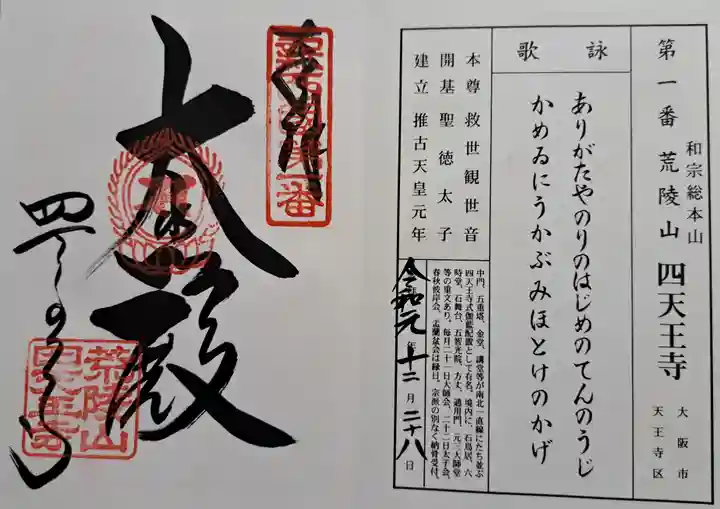 第一番 荒陵山 四天王寺
和宗総本山
大阪市
天王寺区
詠歌
ありがたやのりのはじめのてんのうじ
かめゐにうかぶみほとけのかげ
本尊 救世観世音
開基 聖徳太子
建立 推古天皇元年
中門、五重塔、金堂、講堂等が南北一直線にたち並ぶ
四天王寺式伽藍配置として有名。境内に、石鳥居、六
時堂、石舞台、五智光院、方丈、通用門、元三大師堂
等の重文あり。毎月二十一日大師会、二十二日太子会、
春秋彼岸会、盂蘭盆会は縁日。宗派の別なく納骨受付。
令和元年十二月二十八日
奉拝
大殿
四天王寺
荒陵山
四天王寺